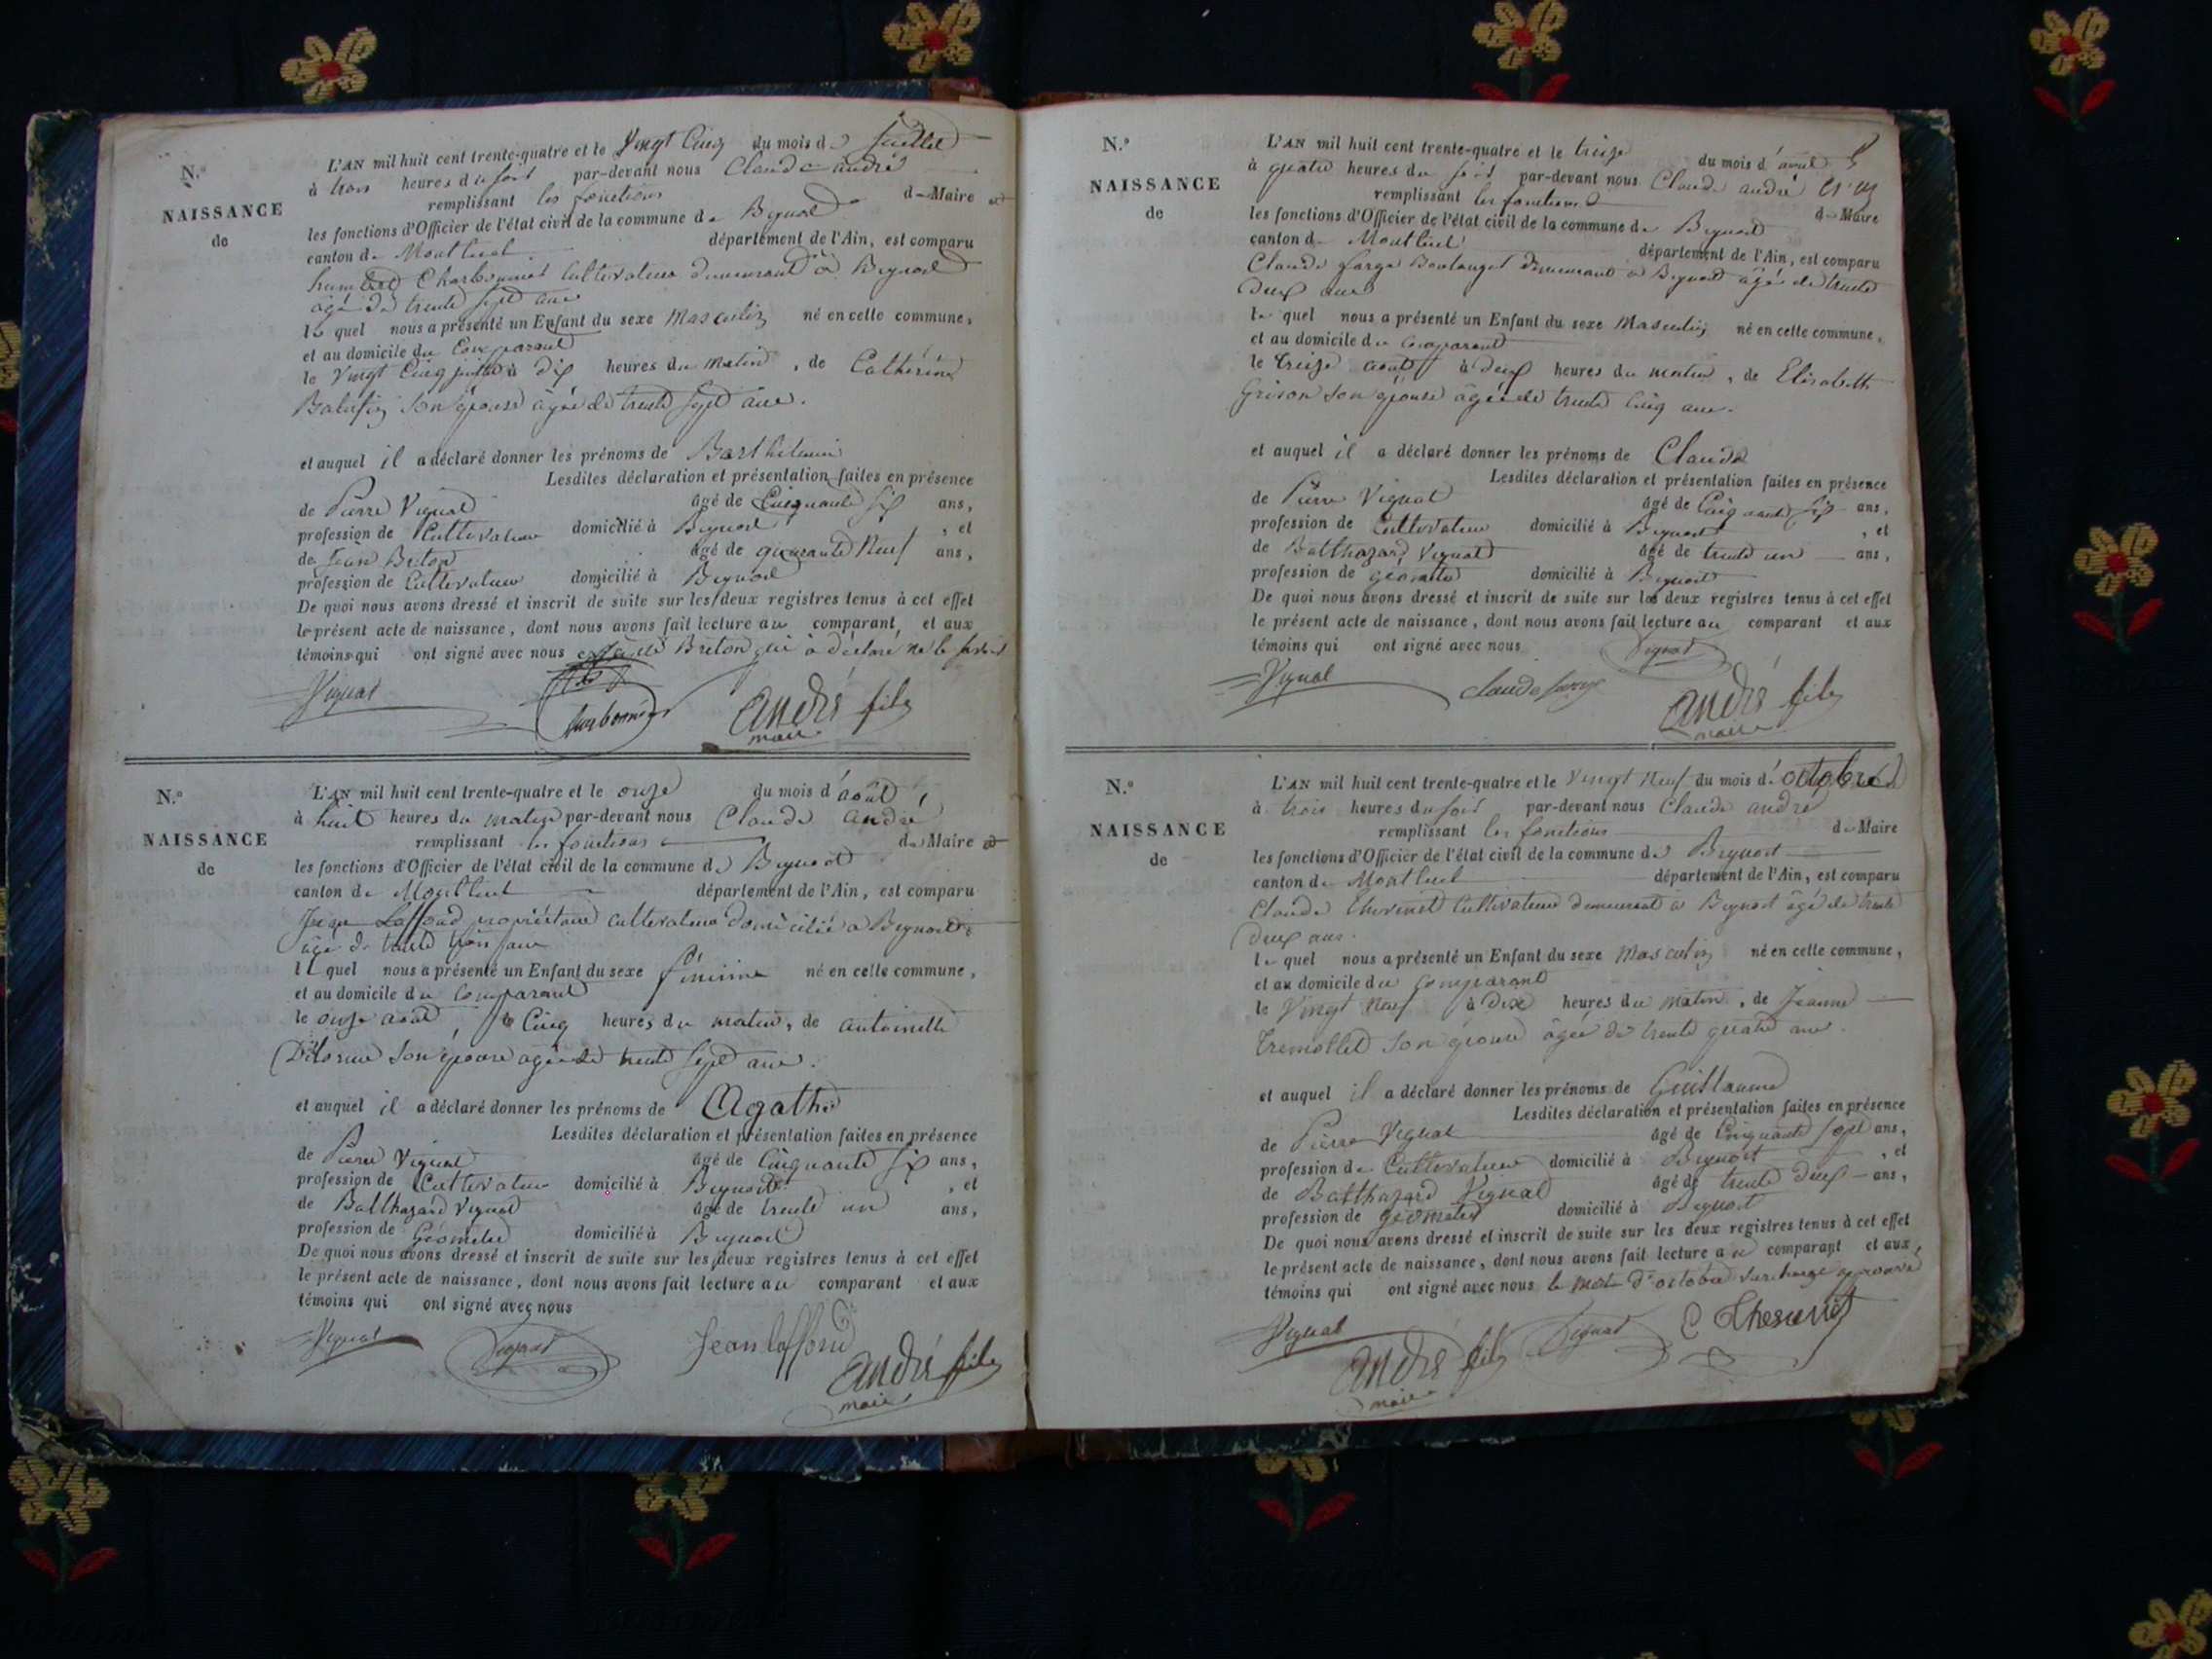 N.º
NAISSANCE
de
L'AN mil huit cent trente-quatre et le Vingt Cinq du mois de Juillet
à trois heures du soir par-devant nous Claude andré
remplissant les fonctions de Maire et
les fonctions d'Officier de l'état civil de la commune de Beynost
canton de Montluel département de l'Ain, est comparu
humbert Charbonnier Cultivateur demeurant à Beynost
âgé de trente sept ans
le quel nous a présenté un Enfant du sexe Masculin né en cette commune,
et au domicile du Comparant
le Vingt Cinq juillet à dix heures du matin, de Catherine
son épouse âgée de trente sept ans.
et auquel il a déclaré donner les prénoms de Barthelemi
Lesdites déclaration et présentation faites en présence
de Pierre Vignat âgé de Cinquante six ans,
profession de Cultivateur domicilié à Beynost, et
de Jean Breton âgé de quarante Neuf ans,
profession de Cultivateur domicilié à Beynost
De quoi nous avons dressé et inscrit de suite sur les deux registres tenus à cet effet
le présent acte de naissance, dont nous avons fait lecture au comparant et aux
témoins qui ont signé avec nous Breton qui à déclaré ne le savoir
Vignat
Charbonnier
André fils
maire
N.º
NAISSANCE
de
L'AN mil huit cent trente-quatre et le onze du mois d'août
à huit heures du matin par-devant nous Claude andré
remplissant les fonctions de Maire et
les fonctions d'Officier de l'état civil de la commune de Beynost
canton de Montluel département de l'Ain, est comparu
Jean Laffond propriétaire cultivateur domicilié à Beynost
âgé de trente trois ans
le quel nous a présenté un Enfant du sexe féminine né en cette commune,
et au domicile du Comparant
le onze août, à Cinq heures du matin, de antoinette
Delorme son épouse âgée de trente sept ans.
et auquel il a déclaré donner les prénoms de Agathe
Lesdites déclaration et présentation faites en présence
de Pierre Vignat âgé de Cinquante six ans,
profession de Cultivateur domicilié à Beynost, et
de Balthazard Vignat âgé de trente un ans,
profession de Géometre domicilié à Beynost
De quoi nous avons dressé et inscrit de suite sur les deux registres tenus à cet effet
le présent acte de naissance, dont nous avons fait lecture au comparant et aux
témoins qui ont signé avec nous
Vignat
Vignat
Jean laffond
André fils
maire
N.º
NAISSANCE
de
L'AN mil huit cent trente-quatre et le treize du mois d'août
à quatre heures du soir par-devant nous Claude andré
remplissant les fonctions de Maire
les fonctions d'Officier de l'état civil de la commune de Beynost
canton de Montluel département de l'Ain, est comparu
Claude farge Boulanger demeurant à Beynost âgé de trente
deux ans
le quel nous a présenté un Enfant du sexe Masculin né en cette commune,
et au domicile du comparant
le treize août à deux heures du matin, de Elisabeth
Grison son épouse âgée de trente Cinq ans.
et auquel il a déclaré donner les prénoms de Claude
Lesdites déclaration et présentation faites en présence
de Pierre Vignat âgé de Cinquante six ans,
profession de Cultivateur domicilié à Beynost, et
de Balthazard Vignat âgé de trente un ans,
profession de géometre domicilié à Beynost
De quoi nous avons dressé et inscrit de suite sur les deux registres tenus à cet effet
le présent acte de naissance, dont nous avons fait lecture au comparant et aux
témoins qui ont signé avec nous
Vignat
Vignat
claude farge
André fils
maire
N.º
NAISSANCE
de
L'AN mil huit cent trente-quatre et le Vingt Neuf du mois d'octobre
à trois heures du soir par-devant nous Claude andré
remplissant les fonctions de Maire
les fonctions d'Officier de l'état civil de la commune de Beynost
canton de Montluel département de l'Ain, est comparu
Claude Cultivateur demeurant à Beynost âgé de trente
deux ans.
le quel nous a présenté un Enfant du sexe Masculin né en cette commune,
et au domicile du Comparant
le Vingt Neuf à dix heures du matin, de Jeanne
Tremollet son épouse âgée de trente quatre ans.
et auquel il a déclaré donner les prénoms de Guillaume
Lesdites déclaration et présentation faites en présence
de Pierre Vignat âgé de Cinquante sept ans,
profession de Cultivateur domicilié à Beynost, et
de Balthazard Vignat âgé de trente deux ans,
profession de géometre domicilié à Beynost
De quoi nous avons dressé et inscrit de suite sur les deux registres tenus à cet effet
le présent acte de naissance, dont nous avons fait lecture au comparant et aux
témoins qui ont signé avec nous le mot d'octobre surchargé approuvé
Vignat
André fils
maire
Vignat